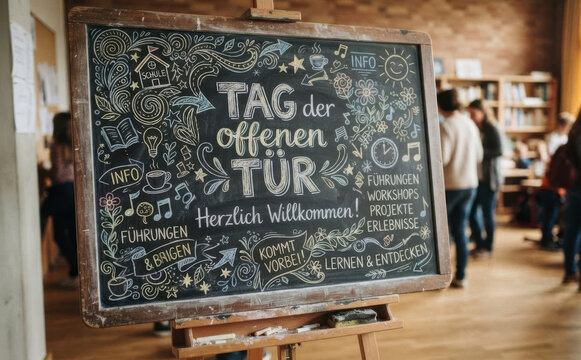 SCHULE
INFO
TAG der
offenen
TÜR
Herzlich Willkommen!
INFO
FÜHRUNGEN
& BRIGEN
KOMMT
VORBEI!
FÜHRUNGEN
WORKSHOPS
PROJEKTE
ERLEBNISSE
LERNEN & ENTDECKEN